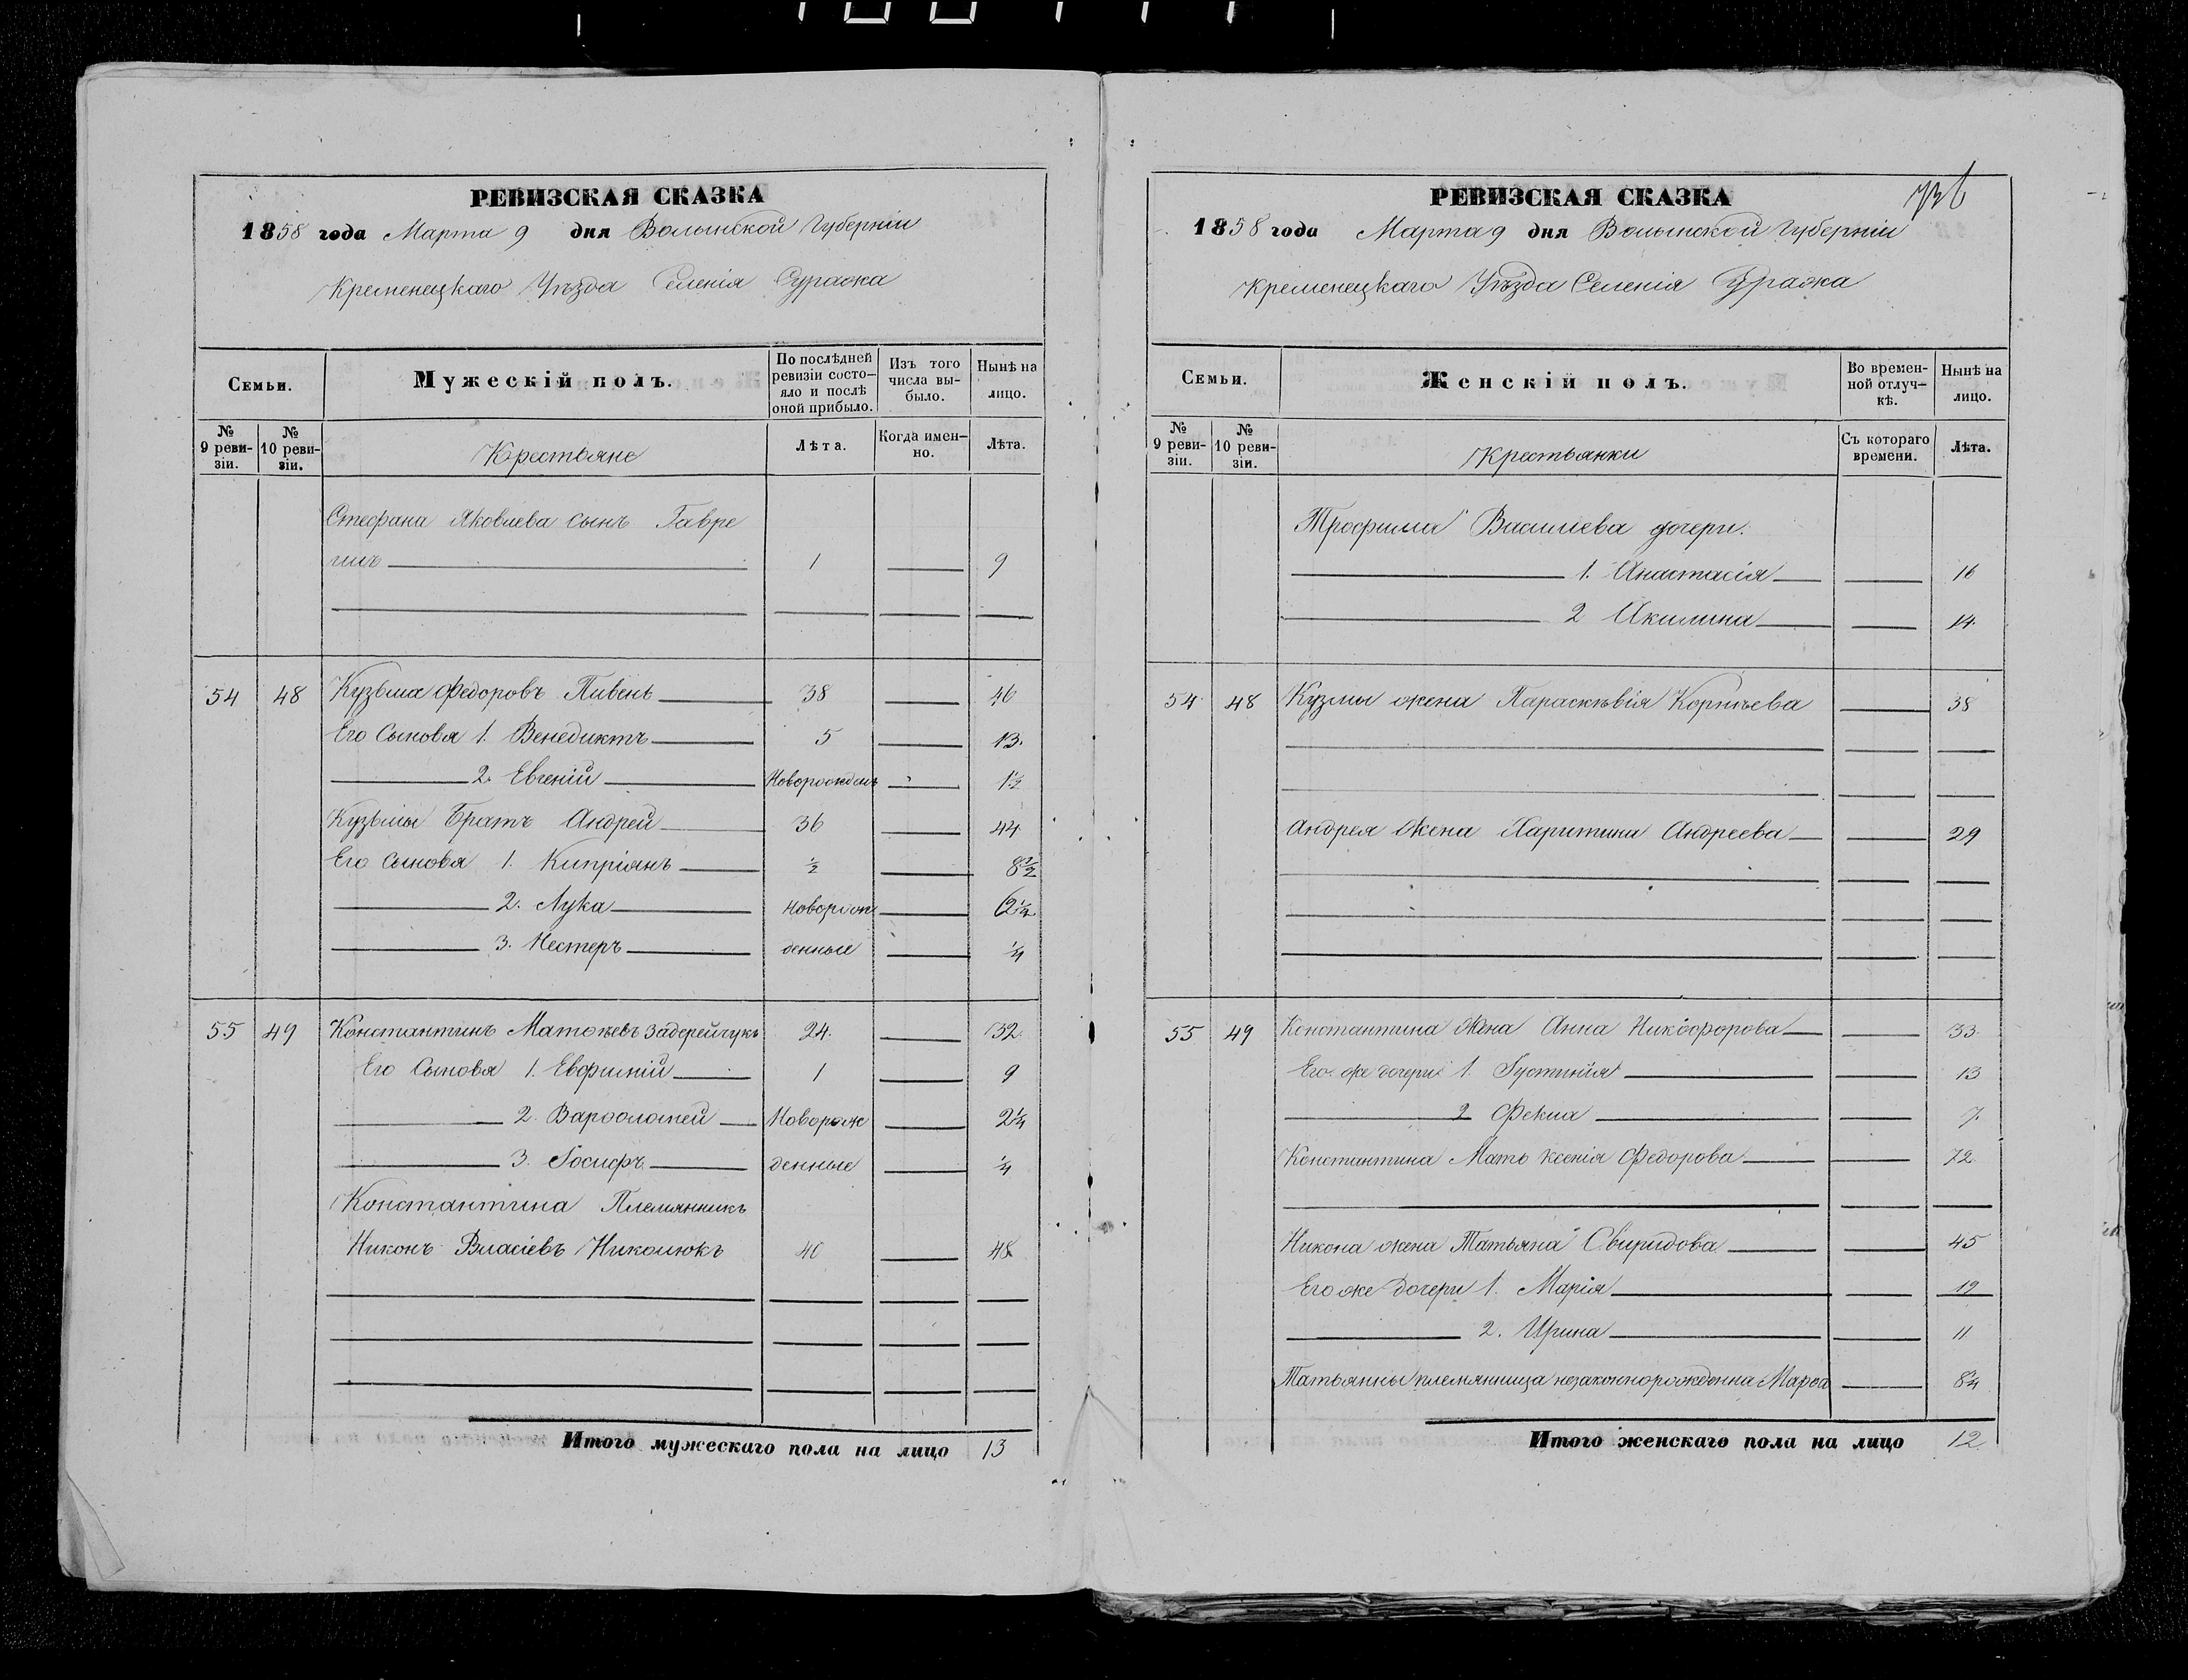 РЕВИЗСКАЯ СКАЗКА
1858 года Марта 9 дня Волынской Губерніи
Кременецкаго Уѣзда Селенія Суража
Семьи.
Мужескій полъ.
По послѣдней ревизіи состо-яло и послѣ оной прибыло.
Изъ того числа вы-было.
Нынѣ на лицо.
№ 9 реви-зіи.
№ 10 реви-зіи.
Крестьяне
Лѣта.
Когда имен-но.
Лѣта.
Стефана Яковлева сынъ Гавре
илъ 1 9
54 48 Кузьма Федоровъ Пивень 38 46
Его Сыновя 1. Венедиктъ 5 13.
2. Евгеній 1½
Кузьмы Братъ Андрей 36 44
Его Сыновя 1. Кипріянъ ½ 8½
2. Лука Новорож 2¼
3. Нестеръ денные ¼
55 49 Константинъ Матѳѣевъ Задерейчукъ 24. 32.
Его Сыновя 1. Евфимій 1 9
2. Варѳоломей Новорож 2¼
3. Іосифъ денные ¼
Константина Племянникъ
Никонъ Власіевъ Николюкъ 40 48
Итого мужескаго пола на лицо 13
РЕВИЗСКАЯ СКАЗКА
1858 года Марта 9 дня Волынской Губерніи
Кременецкаго Уѣзда Селенія Суража
Семьи.
Женскій полъ.
Во времен-ной отлуч-кѣ.
Нынѣ на лицо.
№ 9 реви-зіи.
№ 10 реви-зіи.
Крестьянки
Съ котораго времени.
Лѣта.
Трофима Василіева дочери.
1. Анастасія 16
2 Акилина 14.
54 48 Кузмы жена Параскѣвія Корнѣева 38
Андрея Жена Харитина Андреева 29
55 49 Константина Жена Анна Никофорова 33
Его же дочери 1. Іустинія 13
2 Фекла 7.
Константина Мать Ксенія Федорова 72
Никона жена Татьяна Свиридова 45
Его же дочери 1. Марія 19
2. Ирина 11
Татьянны племянница незаконнорожденна Марѳа 8¼
Итого женскаго пола на лицо 12